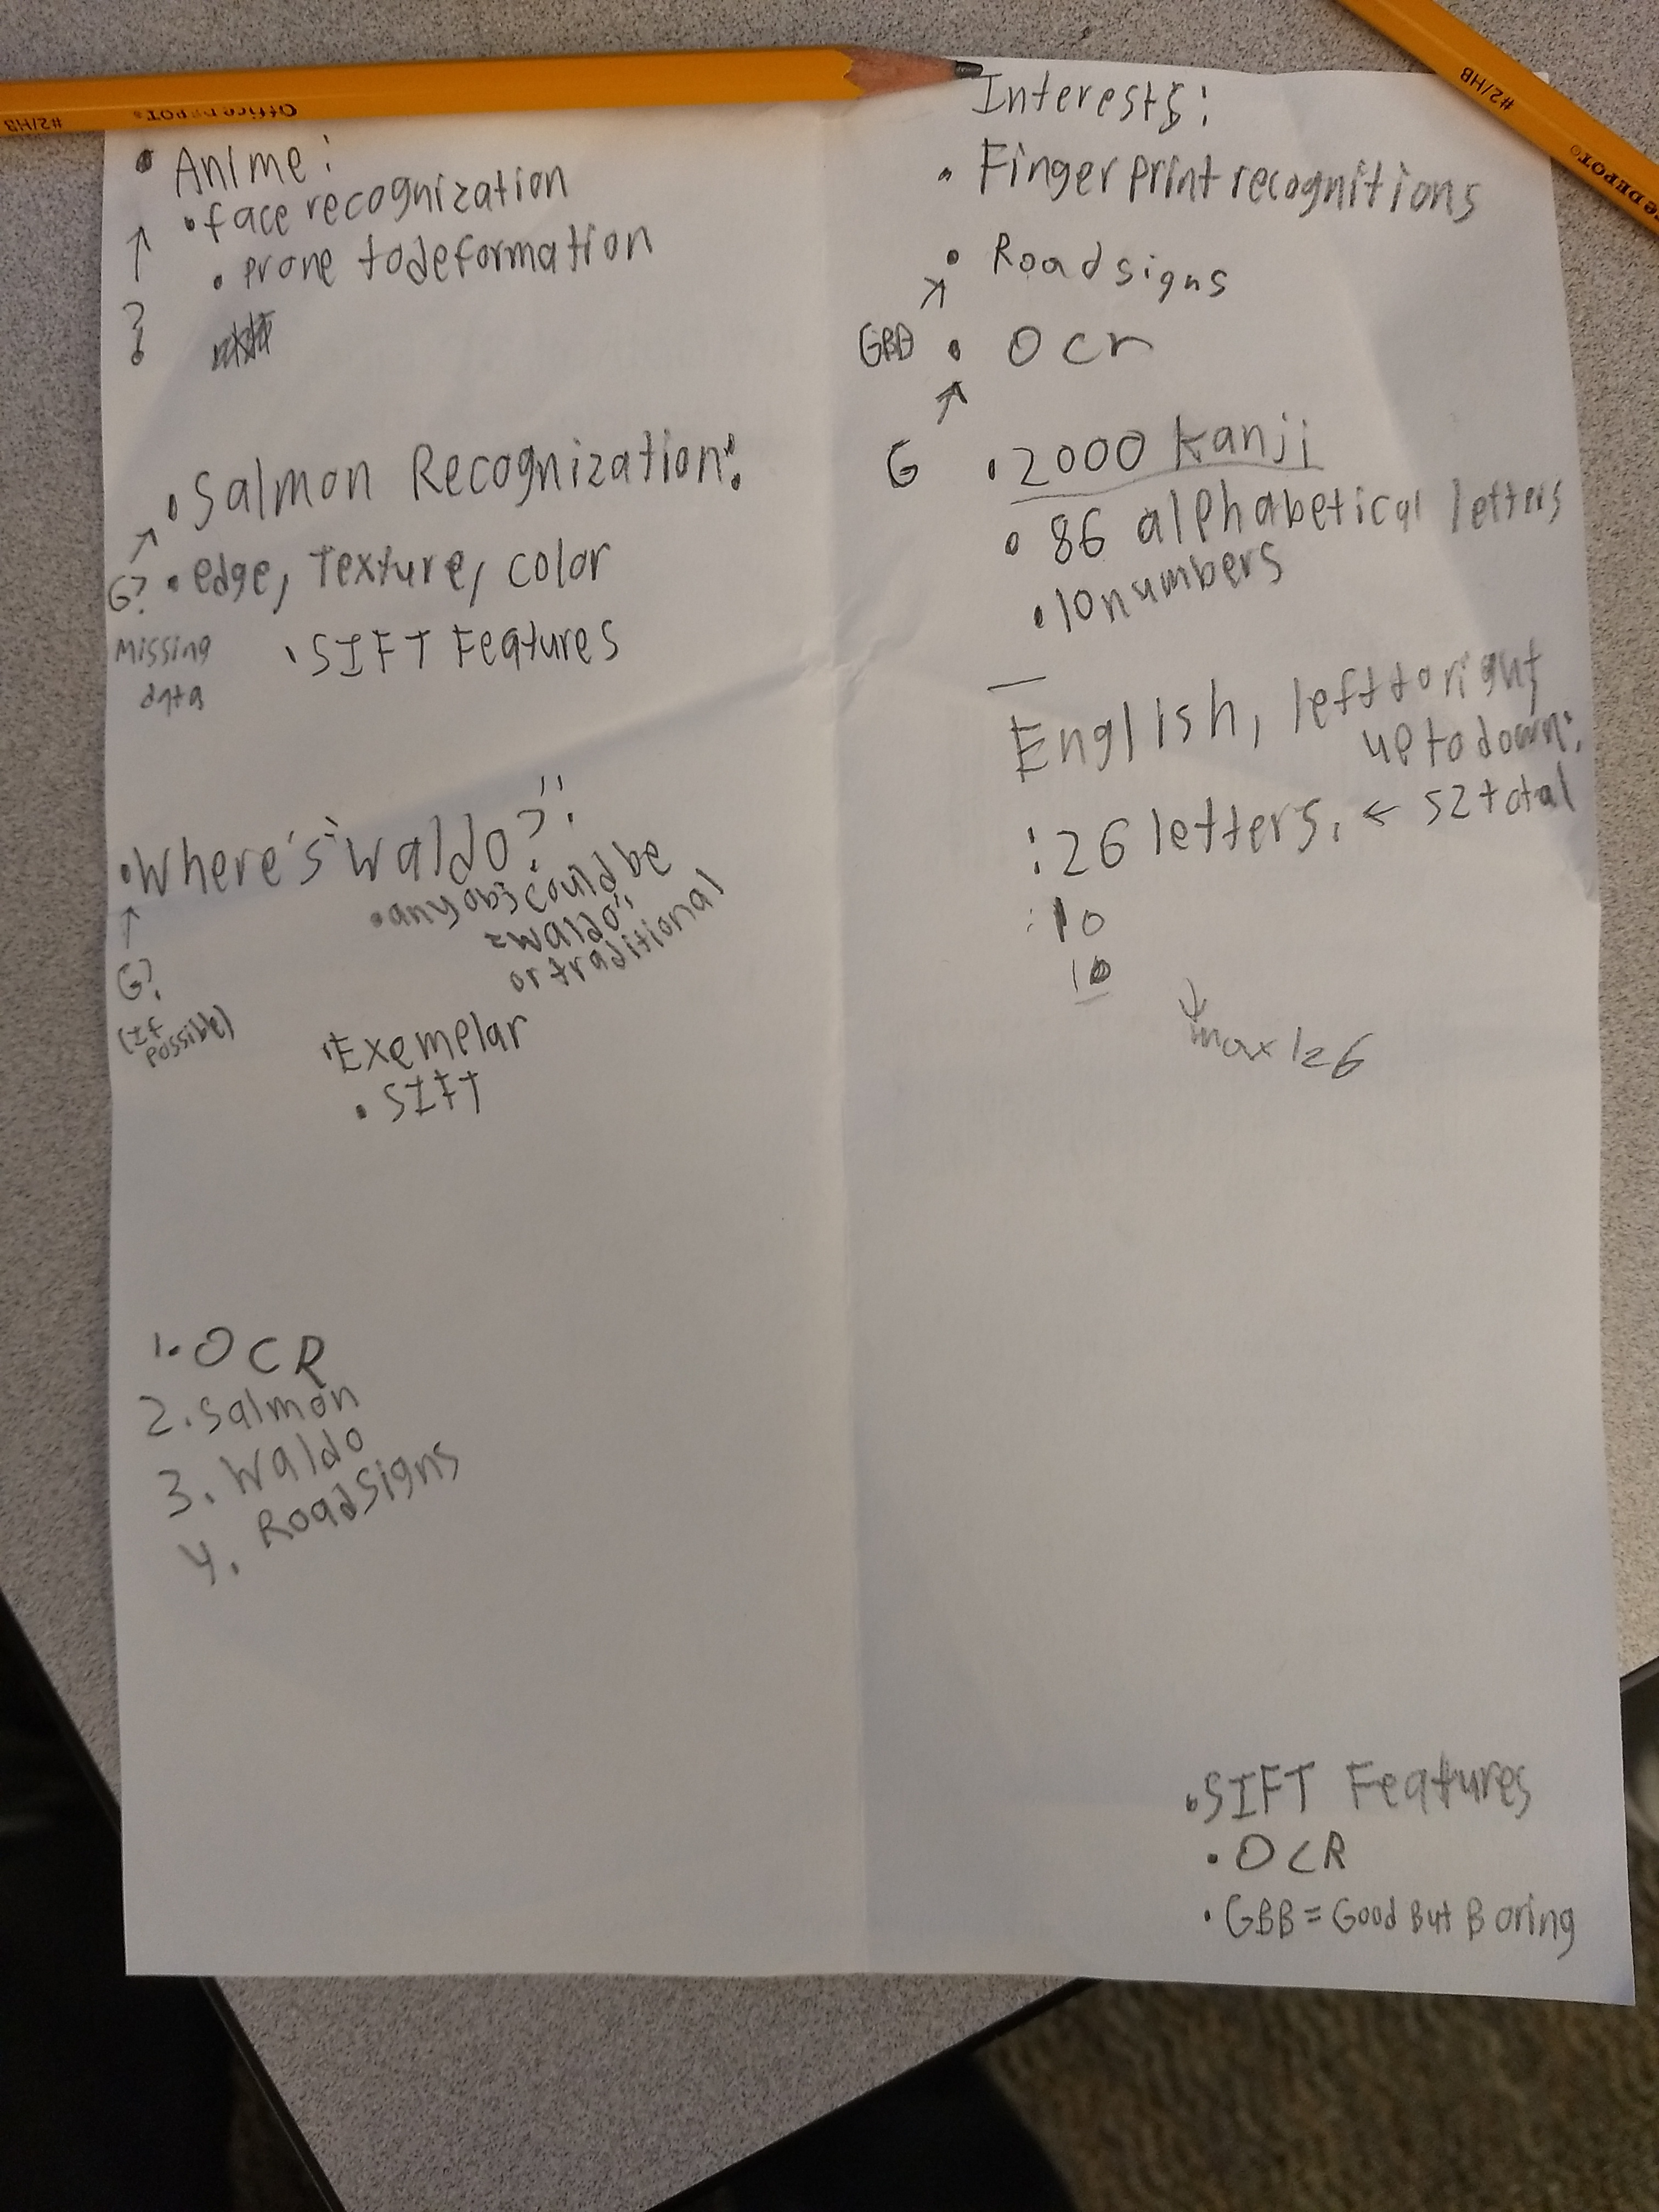 Office DEPOT®
#2/HB
#2/HB
DEPOT®
• Anime:
• face recognization
• prone to deformation
↑
?
• Salmon Recognization:
↗
G?
• edge, Texture, color
Missing
data
• SIFT Features
• Where's "Waldo?":
↑
G?
(If
possible)
• any obj could be
"waldo",
or traditional
• Exemplar
• SIFT
1. OCR
2. Salmon
3. Waldo
4. Road Signs
Interests:
• Finger print recognitions
• Road signs
↗
GBB • Ocr
↗
G • 2000 Kanji
• 86 alphabetical letters
• 10 numbers
—
English, left to right
up to down:
: 26 letters, ← 52 total
: 10
10
↓
max 126
• SIFT Features
• OCR
• GBB = Good But Boring